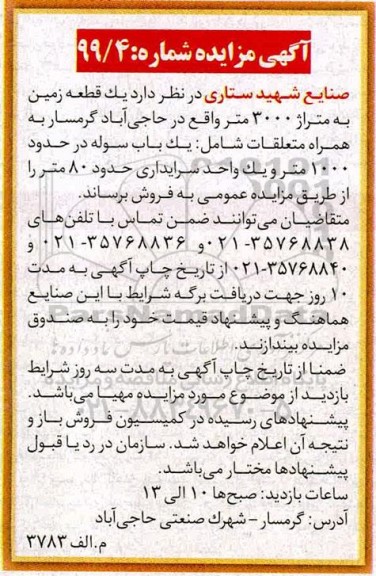 آگهی مزایده شماره: ۹۹/۴
صنایع شهید ستاری در نظر دارد یك قطعه زمین
به متراژ ۳۰۰۰ متر واقع در حاجی‌آباد گرمسار به
همراه متعلقات شامل: یك باب سوله در حدود
۱۰۰۰ متر و یك واحد سرایداری حدود ۸۰ متر را
از طریق مزایده عمومی به فروش برساند.
متقاضیان می‌توانند ضمن تماس با تلفن‌های
۰۲۱-۳۵۷۶۸۸۳۸ و ۰۲۱-۳۵۷۶۸۸۳۶ و
۰۲۱-۳۵۷۶۸۸۴۰ از تاریخ چاپ آگهی به مدت
۱۰ روز جهت دریافت برگه شرایط با این صنایع
هماهنگ و پیشنهاد قیمت خود را به صندوق
مزایده بیندازند.
ضمنا از تاریخ چاپ آگهی به مدت سه روز شرایط
بازدید از موضوع مورد مزایده مهیا می‌باشد.
پیشنهادهای رسیده در کمیسیون فروش باز و
نتیجه آن اعلام خواهد شد. سازمان در رد یا قبول
پیشنهادها مختار می‌باشد.
ساعات بازدید: صبح‌ها ۱۰ الی ۱۳
آدرس: گرمسار – شهرك صنعتی حاجی‌آباد
م.الف ۳۷۸۳